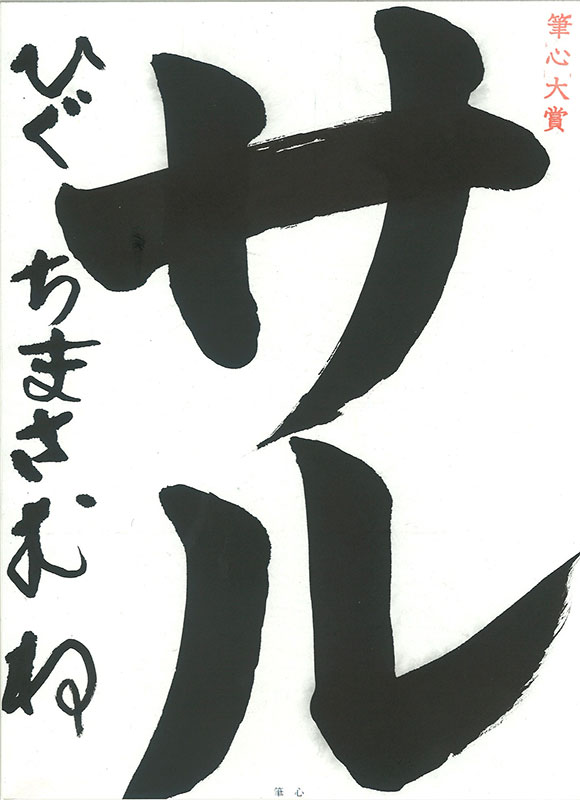 筆心大賞
サル
ひぐちまさむね
筆心